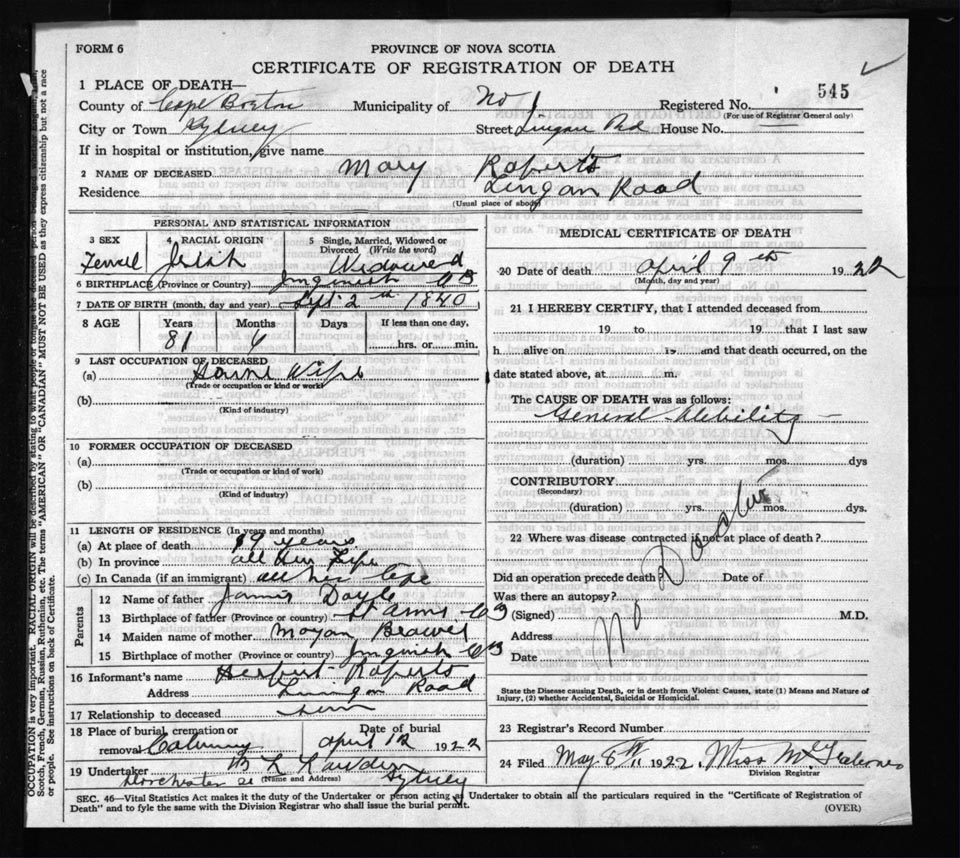 FORM 6
PROVINCE OF NOVA SCOTIA
CERTIFICATE OF REGISTRATION OF DEATH
545
1 PLACE OF DEATH—
County of Cape Breton Municipality of No 1 Registered No.
(For use of Registrar General only)
City or Town Sydney Street Lingan Rd House No. —
If in hospital or institution, give name
2 NAME OF DECEASED Mary Roberts
Residence Lingan Road
(Usual place of abode)
PERSONAL AND STATISTICAL INFORMATION
3 SEX 4 RACIAL ORIGIN 5 Single, Married, Widowed or Divorced (Write the word)
Widowed
6 BIRTHPLACE (Province or Country) Ingonish C B
7 DATE OF BIRTH (month, day, and year) Sept 2 th 1840
8 AGE Years Months Days If less than one day,
81 6 hrs. or min.
9 LAST OCCUPATION OF DECEASED
(a) House Wife
(Trade or occupation or kind or work)
(b)
(Kind of industry)
10 FORMER OCCUPATION OF DECEASED
(a)
(Trade or occupation or kind of work)
(b)
(Kind of industry)
11 LENGTH OF RESIDENCE (In years and months)
(a) At place of death 19 years
(b) In province all her Life
(c) In Canada (if an immigrant) all her Life
Parents
12 Name of father James Doyle
13 Birthplace of father (Province or country) St Anns C B
14 Maiden name of mother
15 Birthplace of mother (Province or country) Ingonish C B
16 Informant's name Herbert Roberts
Address Lingan Road
17 Relationship to deceased
18 Place of burial, cremation or removal Calvary Date of burial April 12 1922
19 Undertaker
(Name and Address)
Dorchester St Sydney
MEDICAL CERTIFICATE OF DEATH
20 Date of death April 9 th 1922
(Month, day and year)
21 I HEREBY CERTIFY, that I attended deceased from
19 to 19 that I last saw
h alive on 19 and that death occurred, on the
date stated above, at m.
The CAUSE OF DEATH was as follows:
General Debility
(duration) yrs. mos. dys
CONTRIBUTORY
(Secondary)
(duration) yrs. mos. dys.
22 Where was disease contracted if not at place of death?
Did an operation precede death Date of
Was there an autopsy?
(Signed) M.D.
Address
Date
No Doctor
State the Disease causing Death, or in death from Violent Causes, state (1) Means and Nature of
Injury, (2) whether Accidental, Suicidal or Homicidal.
23 Registrar's Record Number
24 Filed May 6 th 1922 Miss
Division Registrar
SEC. 46—Vital Statistics Act makes it the duty of the Undertaker or person acting as Undertaker to obtain all the particulars required in the "Certificate of Registration of
Death" and to fyle the same with the Division Registrar who shall issue the burial permit.
(OVER)